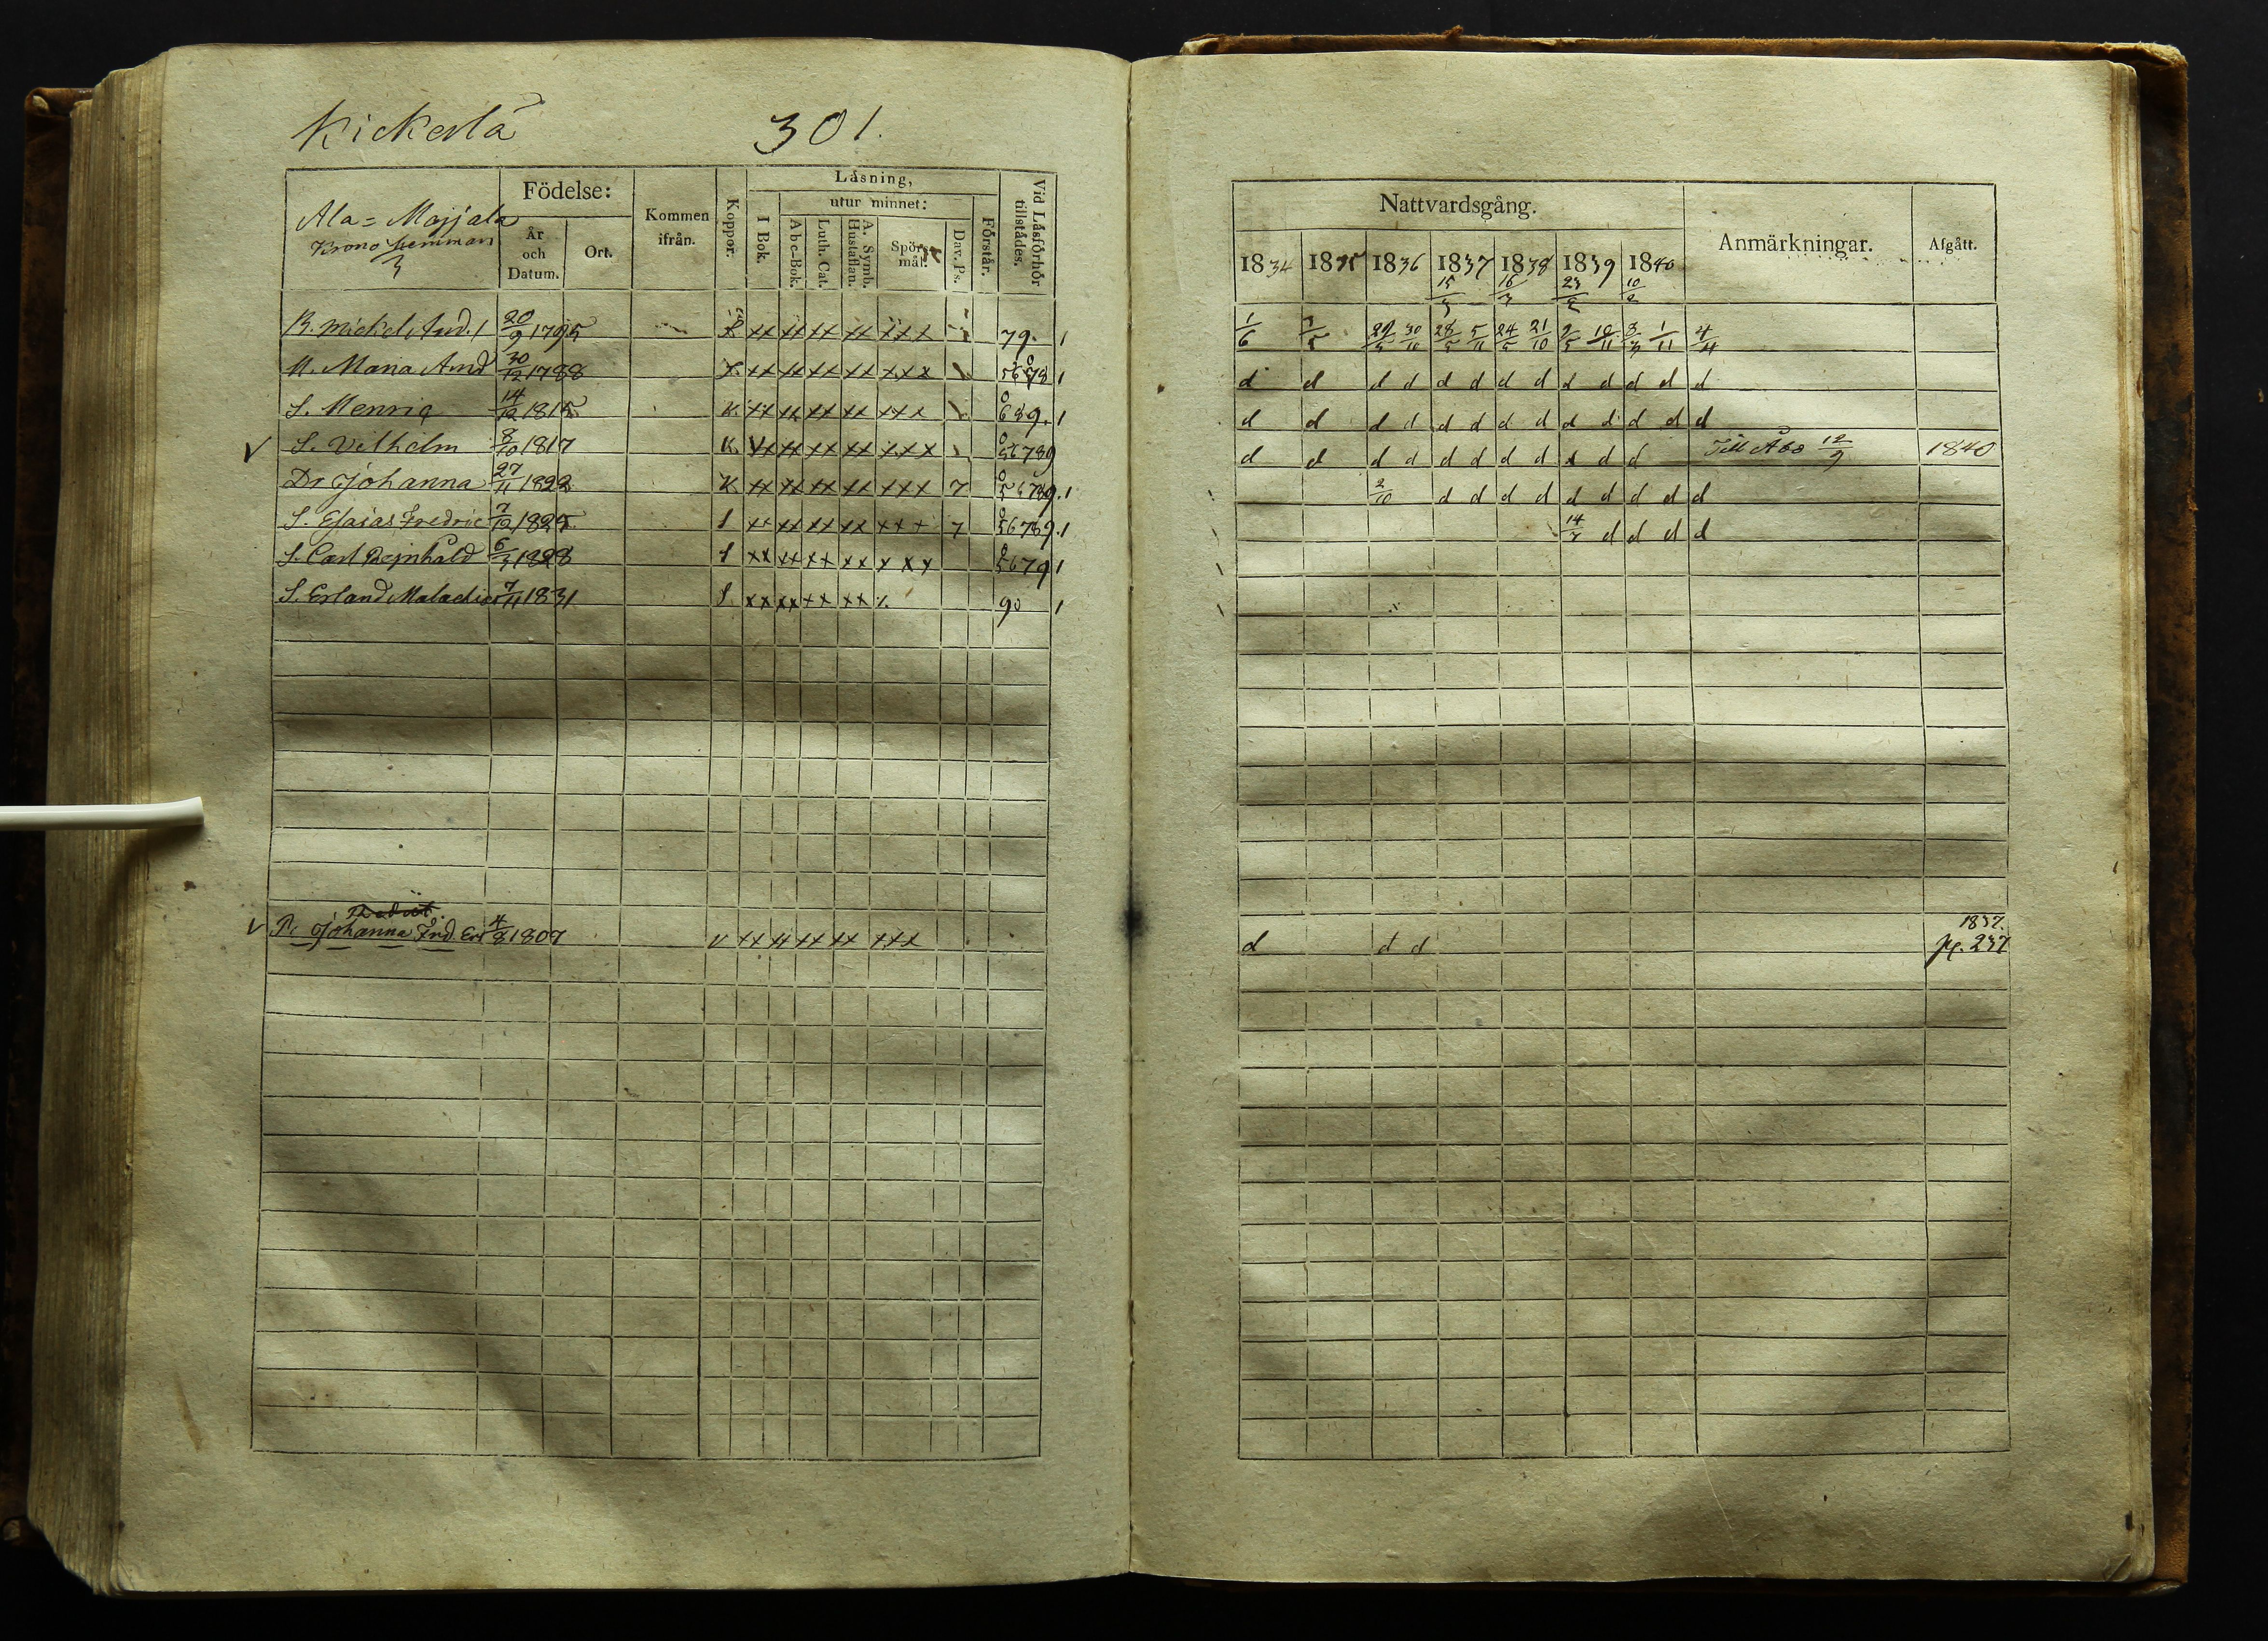 Kickerlä 301.
Ala=Majjala
Krono hemman
3
Födelse:
År och Datum.
Ort.
Kommen ifrån.
Koppor.
Läsning,
I Bok.
utur minnet:
Abc-Bok.
Luth. Cat.
A. Symb. Hustaflan.
Spörsmål.
Dav. Ps.
Förstår.
Vid Läsförhör tillstädes.
B. Mickel And. 20/9 1795 xx xx xx xx xxx 79. 1
M. Maria And 30/12 1788 xx xx xx xx xxx 1
S. Henriq 14/12 1815 K. xx xx xx xx xxx 1
V S. Vilhelm 8/10 1817 K. xx xx xx xx xxx 56789
Dr Johanna 27/11 1822 K xx xx xx xx xxx 7 1
S. Esaias Fredric 7/12 1825 S xx xx xx xx xxx 7 56789.1
S. Carl Rejnhåld 6/3 1828 S xx xx xx xx xxx 5679 1
S. Erland Malachias 7/11 1831 S. xx xx xx xx 90 1
V P. Johanna Frd. Ers 4/8 1807 v xx xx xx xx xxx
Nattvardsgång.
Anmärkningar.
Afgått.
1834 1835 1836 1837 1838 1839 1840
15/3 16/3 10/2
1/6 30/10 28/5 5/11 24/5 21/10 10/11 1/11
d d d d d d d d d d d d d
d d d d d d d d d d d d d
d d d d d d d d d d d Till Åbo 12/9 1840
2/10 d d d d d d d d d
14/7 d d d d
1837.
d d d pg. 237